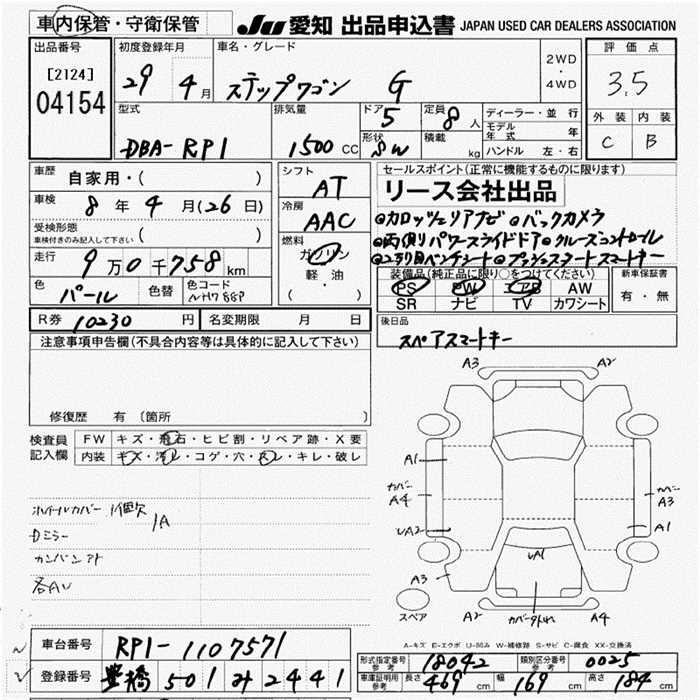 車内保管・守衛保管 JU 愛知 出品申込書 JAPAN USED CAR DEALERS ASSOCIATION
出品番号 初度登録年月 車名・グレード 2WD・4WD 評価点
[2124] 04154 29 4月 ステップワゴン G 3.5
型式 排気量 ドア 定員 ディーラー・並行 外装 内装
DBA-RP1 1500 CC 5 8人 モデル年式 年 C B
形状 SW 積載 kg ハンドル 左・右
車歴 自家用・( ) シフト AT セールスポイント(正常に機能するものに限ります)
リース会社出品
車検 8年 4月(26日) 冷房 AAC
◎カロッツェリアナビ ◎バックカメラ
受検形態 車検付きのみ記入して下さい ( )
◎両側パワースライドドア◎クルーズコントロール
走行 9万0千758km 燃料 ガソリン 軽油 (・)
◎2列目ベンチシート◎プッシュスタートスマートキー
色 パール 色替 色コード NH788P
装備品(純正品に限り○をつけてください) 新車保証書
PS PW AB AW 有・無
SR ナビ TV カワシート
R券 10230円 名変期限 月 日
後日品
スペアスマートキー
注意事項申告欄(不具合内容等は具体的に記入して下さい)
修復歴 有 (箇所
検査員記入欄 FW キズ・飛石・ヒビ割・リペア跡・X要
内装 キズ・汚レ・コゲ・穴・スレ・キレ・破レ
ホイールカバー 1個欠
1A
Dミラー
カンバンアト
各AU
A3 A2
A1
カバー A4
カバー A3
UA2 A1
UA1
A3
スペア A2 カバー外れ A4
A-キズ E-エクボ U-凹み W-補修跡 S-サビ C-腐食 XX-交換済
車台番号 RP1-1107571
登録番号 豊橋 501 み 2441
形式指定番号 参考 18042 類別区分番号 参考 0025
車庫証明用 参考 長さ 469cm 幅 169cm 高さ 184cm